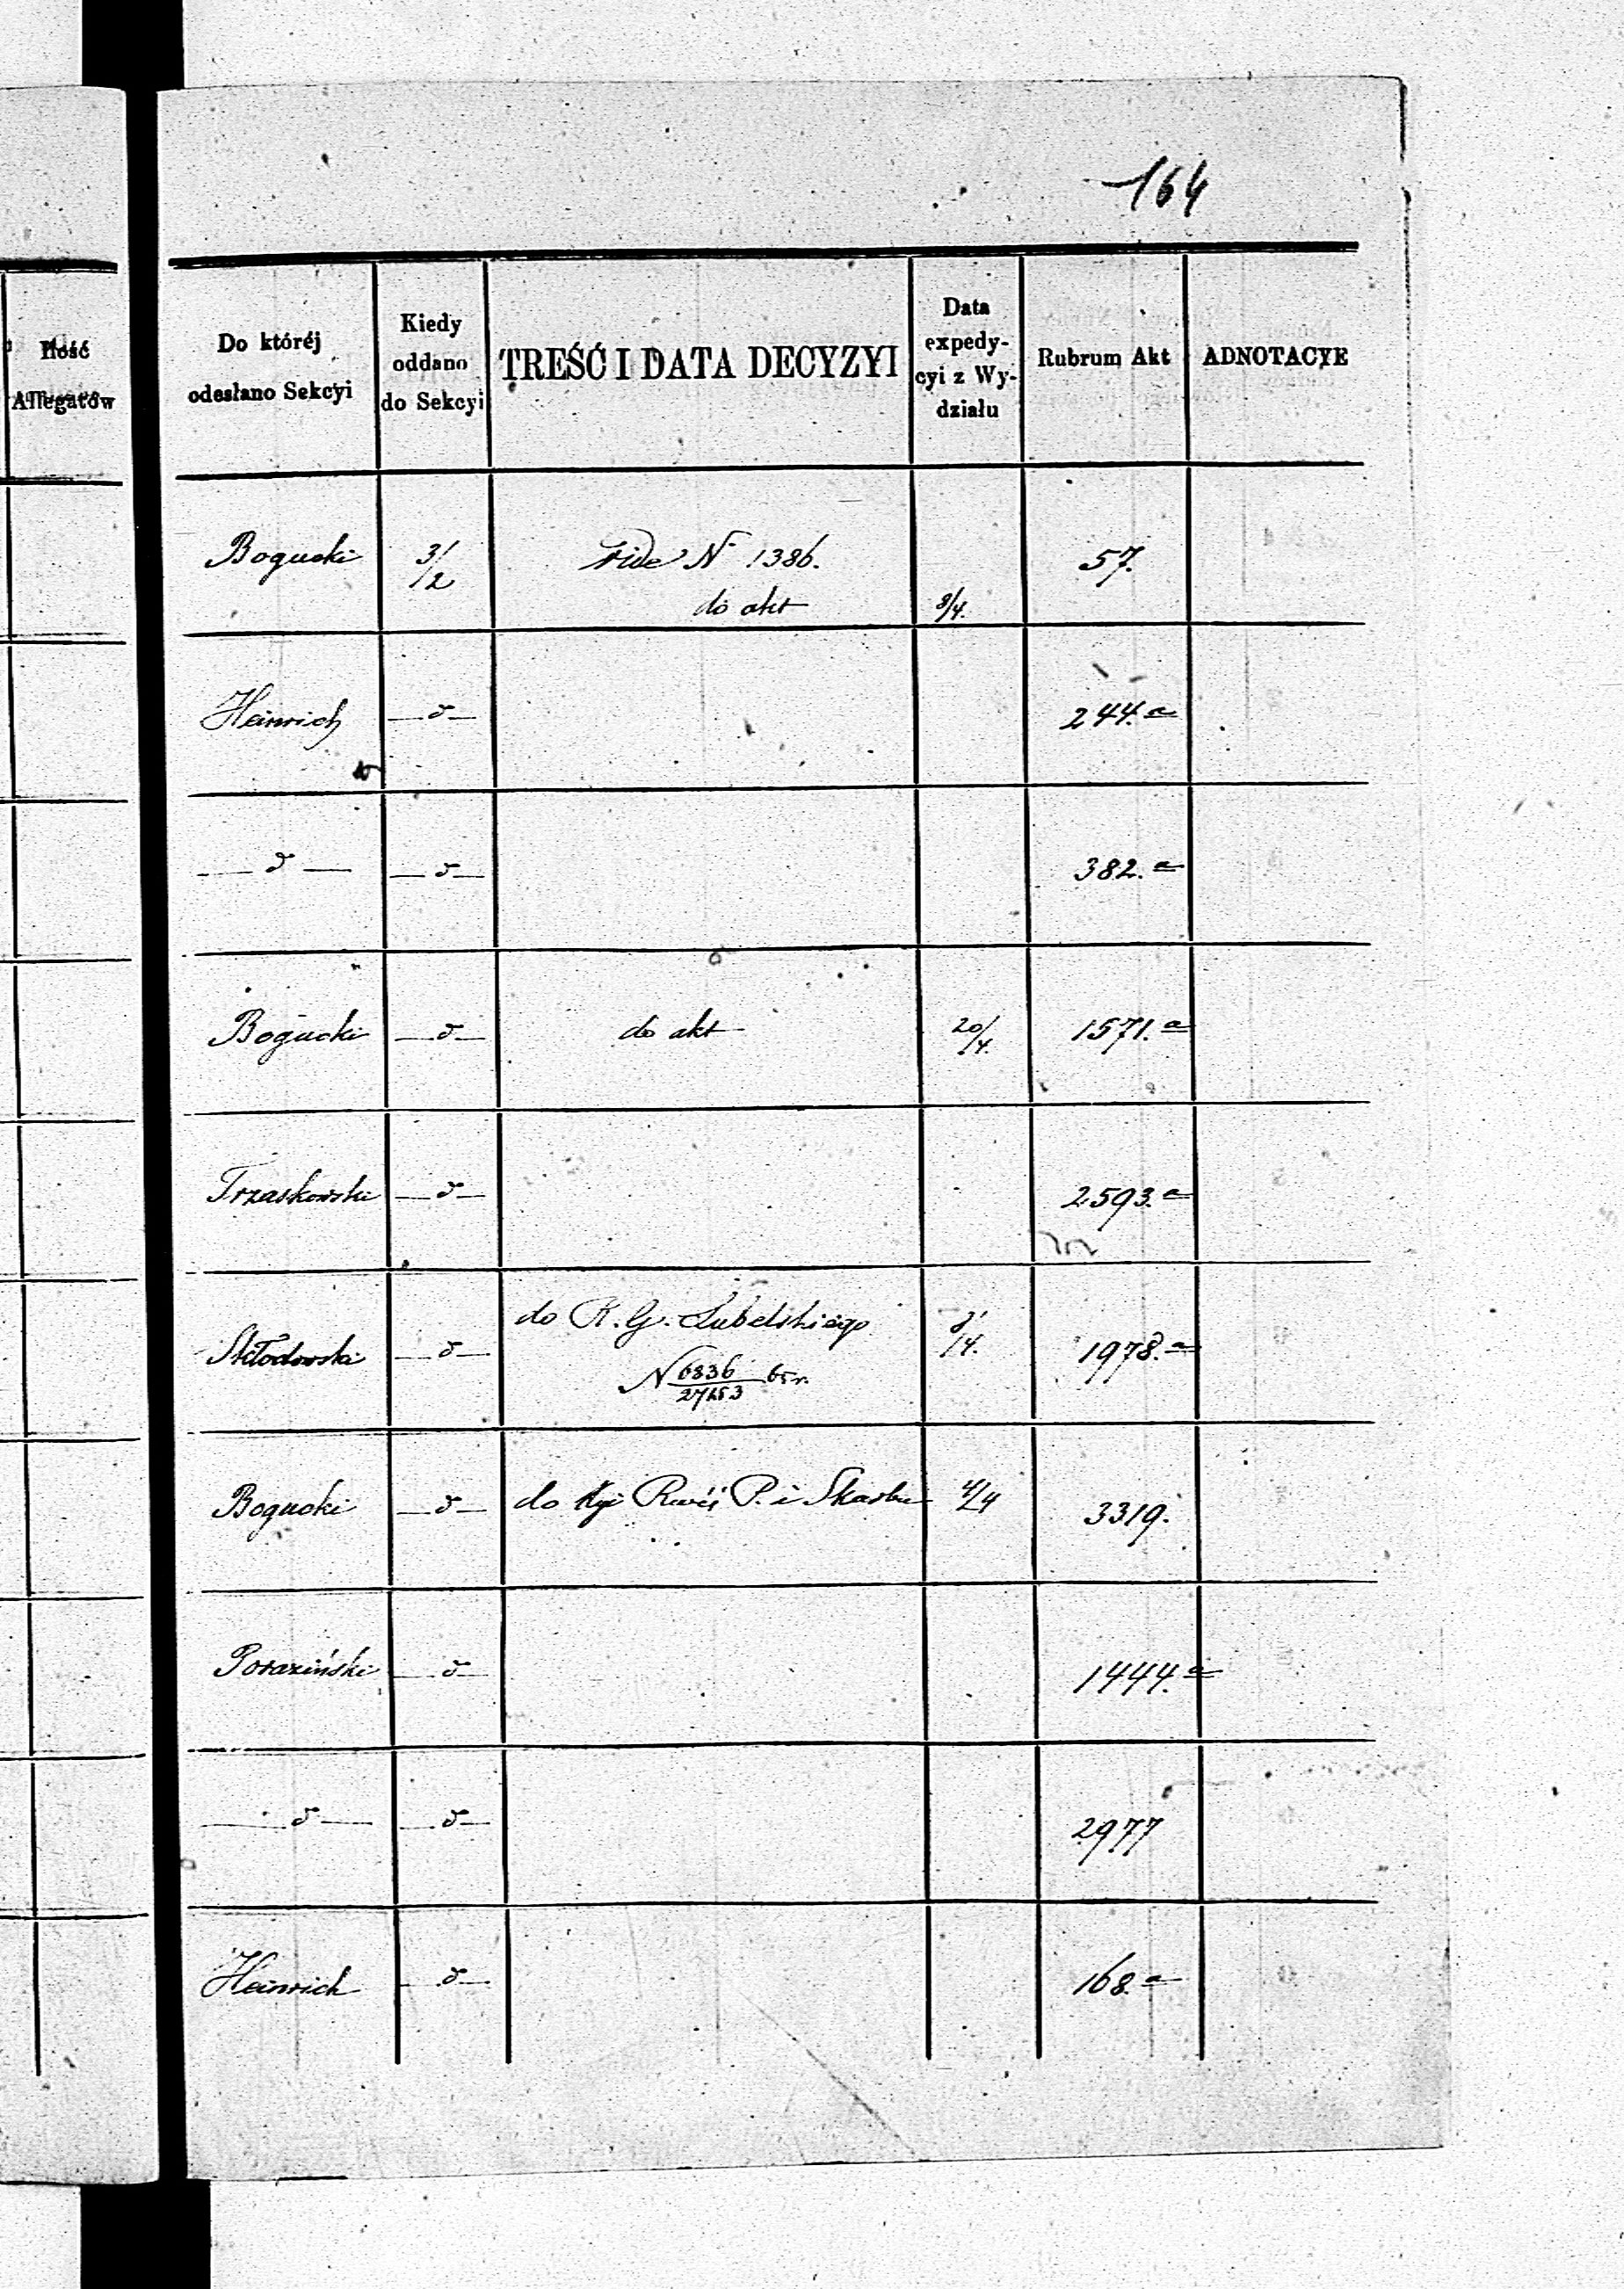 164
Ilość
Allegatów
Do któréj
odesłano Sekcyi
Kiedy
oddano
do Sekcyi
TREŚĆ I DATA DECYZYI
Data
expedy-
cyi z Wy-
działu
Rubrum Akt
ADNOTACYE
Bogucki 3/2 vide N 1386. 57.
do akt 8/4.
Heinrich — d — 244. a
— d — — d — 382. a
Bogucki — d — do akt 20/4. 1571. a
Trzaskowski — d — 2593. a
Skłodowski — d — do R. G. Lubelskiego /4. 1978. a
N 6836/27153 65 r.
Bogucki — d — do P. i Skarbu 4/4 3319.
Poraziński — d — 1444. a
— d — — d — 2977
Heinrich — d — 168. a